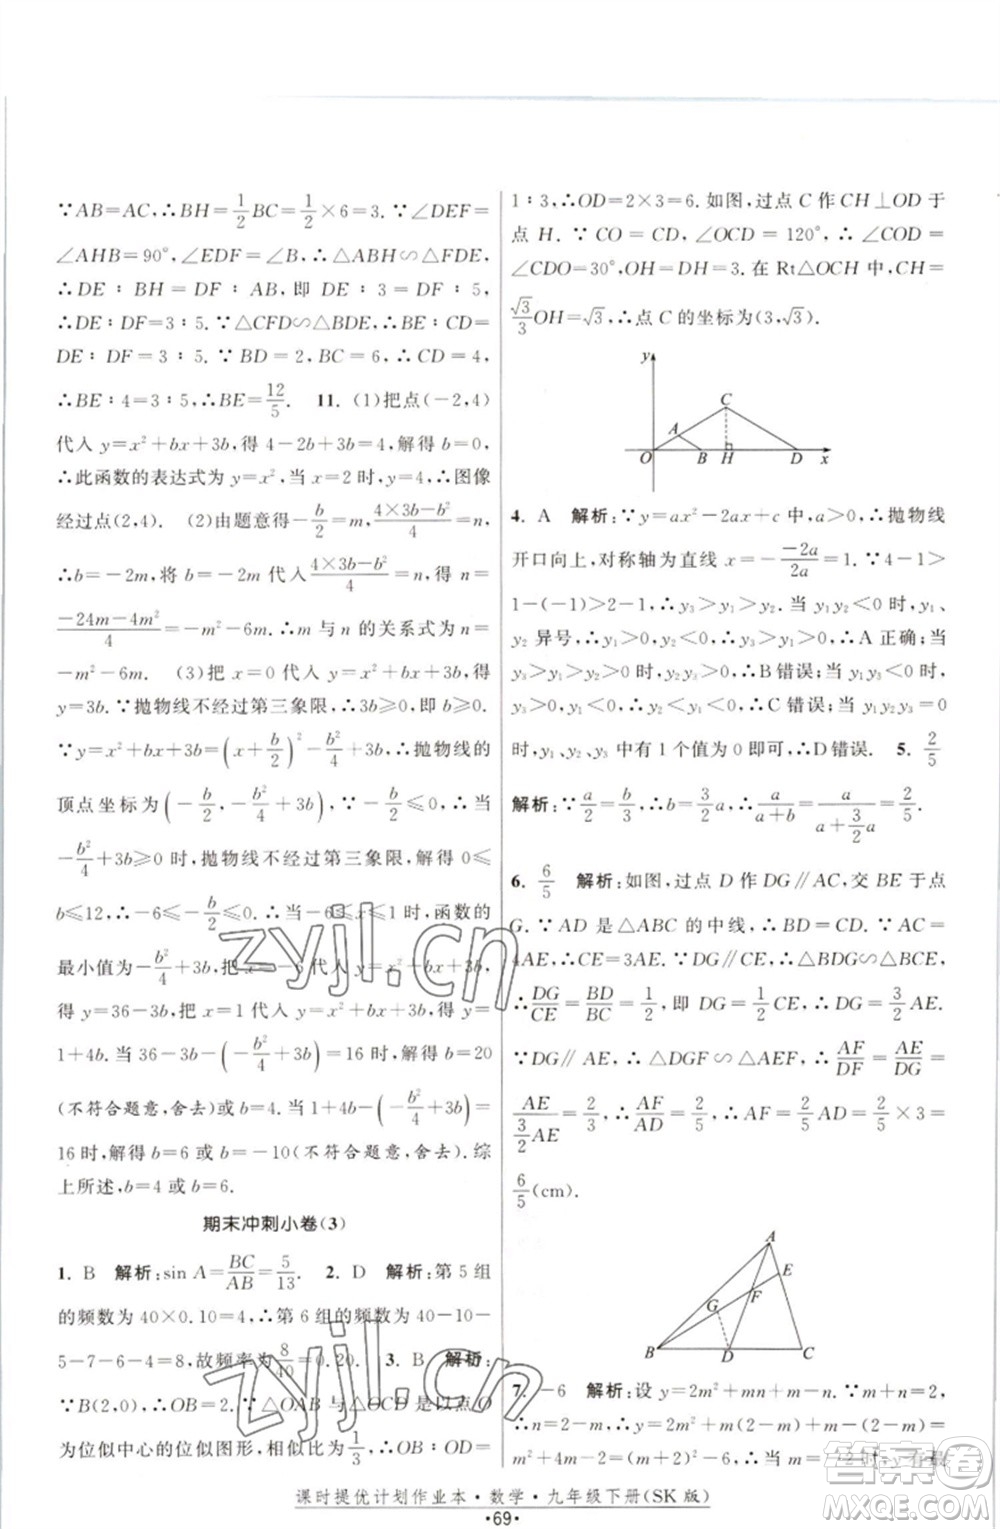 ∵AB=AC,∴BH=1/2BC=1/2×6=3. ∵∠DEF=
∠AHB=90°,∠EDF=∠B,∴△AHB∽△FED,
∴DE∶BH=DF∶AB,即 DE∶3=DF∶5,
∴DE∶DF=3∶5. ∵△CFD∽△BDE,∴BE∶CD=
DE∶DF=3∶5. ∵BD=2,BC=6,∴CD=4,
∴BE∶4=3∶5,∴BE=12/5. 11. (1)把点(-2,4)
代入 y=x²+bx+3b,得 4-2b+3b=4,解得 b=0,
∴此函数的表达式为 y=x²,当 x=2 时,y=4,∴图像
经过点(2,4). (2)由题意得-b/2=m,(4×3b-b²)/4=n,
∴b=-2m,将 b=-2m 代入(4×3b-b²)/4=n,得 n=
(-24m-4m²)/4=-m²-6m.∴m 与 n 的关系式为 n=
-m²-6m. (3)把 x=0 代入 y=x²+bx+3b,得
y=3b.∵抛物线不经过第三象限,∴3b≥0,即 b≥0.
∵y=x²+bx+3b=(x+b/2)²-b²/4+3b,∴抛物线的
顶点坐标为(-b/2,-b²/4+3b). ∵-b/2≤0,∴当
-b²/4+3b≥0 时,抛物线不经过第三象限,解得 0≤
b≤12,∴-6≤-b/2≤0,∴当-6≤x≤1 时,函数的
最小值为-b²/4+3b,把 x=-6 代入 y=x²+bx+3b,
得 y=36-3b,把 x=1 代入 y=x²+bx+3b,得 y=
1+4b.当 36-3b-(-b²/4+3b)=16 时,解得 b=20
(不符合题意,舍去)或 b=4.当 1+4b-(-b²/4+3b)=
16 时,解得 b=6 或 b=-10(不符合题意,舍去).综
上所述,b=4 或 b=6.
期末冲刺小卷(3)
1. B 解析:sin A=BC/AB=5/13. 2. D 解析:第 5 组
的频数为 40×0.10=4,∴第 6 组的频数为 40-10-
5-7-6-4=8,故频率为8/40=0.20. 3. B 解析:
∵B(2,0),∴OB=2. ∵△OAB 与△OCD 是以点 O
为位似中心的位似图形,相似比为1/3,∴OB∶OD=
1∶3,∴OD=2×3=6. 如图,过点 C 作 CH⊥OD 于
点 H. ∵CO=CD,∠OCD=120°,∴∠COD=
∠CDO=30°,OH=DH=3. 在 Rt△OCH 中,CH=
√3/3OH=√3,∴点 C 的坐标为(3,√3).
y
C
A
O B H D x
4. A 解析:∵y=ax²-2ax+c 中,a>0,∴抛物线
开口向上,对称轴为直线 x=-(-2a)/2a=1. ∵4-1>
1-(-1)>2-1,∴y₃>y₁>y₂.当 y₁y₂<0 时,y₁、
y₂ 异号,∴y₁>0,y₂<0,∴y₃>y₁>0,∴A 正确;当
y₂y₃>0 时,y₁y₂>0 或 y₁y₂<0,∴B 错误;当 y₁y₃<0
时,y₂<0,y₂y₃<0,∴C 错误;当 y₁y₂y₃=0
时,y₁、y₂、y₃ 中有 1 个值为 0 即可,∴D 错误. 5. 2/5
解析:∵a/2=b/3,∴b=3/2a,∴a/(a+b)=a/(a+3/2a)=2/5.
6. 6/5 解析:如图,过点 D 作 DG∥AC,交 BE 于点
G. ∵AD 是△ABC 的中线,∴BD=CD. ∵AC=
4AE,∴CE=3AE. ∵DG∥CE,∴△BDG∽△BCE,
∴DG/CE=BD/BC=1/2,即 DG=1/2CE,∴DG=3/2AE.
∵DG∥AE,∴△DGF∽△AEF,∴AF/DF=AE/DG=
AE/(3/2AE)=2/3,∴AF/AD=2/5,∴AF=2/5AD=2/5×3=
6/5(cm).
A
E
F
G
B D C
7. -6 解析:设 y=2m²+mn+m-n. ∵m+n=2,
∴n=2-m,∴y=2m²+m(2-m)+m-(2-m)=
m²+4m-2=(m+2)²-6,∴当 m=-2 时,y 有最
课时提优计划作业本·数学·九年级下册(SK 版)
·69·
zyjl.cn
zyjl.cn
答案圈
MXQE.COM